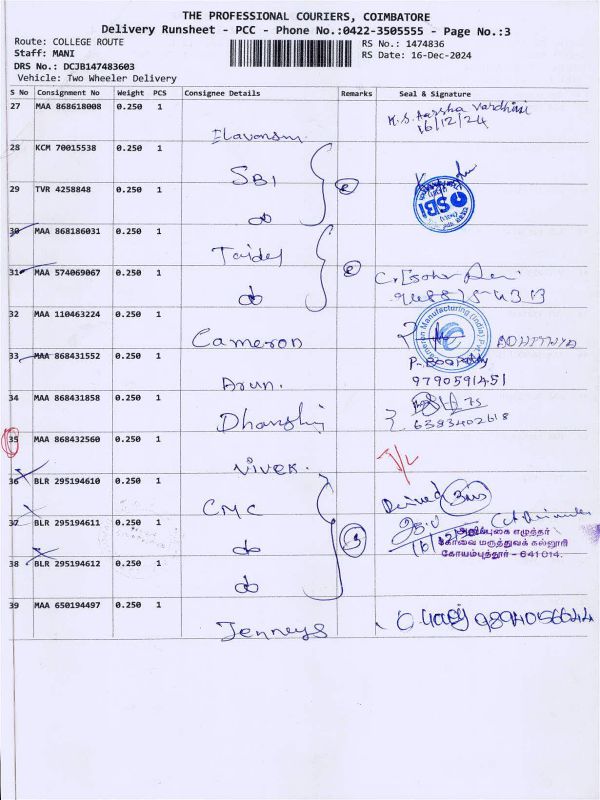 THE PROFESSIONAL COURIERS, COIMBATORE
Delivery Runsheet - PCC - Phone No.:0422-3505555 - Page No.:3
Route: COLLEGE ROUTE
RS No.: 1474836
Staff: MANI
RS Date: 16-Dec-2024
DRS No.: DCJB147483603
Vehicle: Two Wheeler Delivery
S No Consignment No Weight PCS Consignee Details Remarks Seal & Signature
27 MAA 868618008 0.250 1
16/12/24
28 KCM 70015538 0.250 1
SBI
29 TVR 4258848 0.250 1
SBI
do
30 MAA 868186031 0.250 1
31 MAA 574069067 0.250 1
do
32 MAA 110463224 0.250 1
Cameron
Cameron Manufacturing (India) Pvt
33 MAA 868431552 0.250 1
Arun.
9790591451
34 MAA 868431858 0.250 1
6383402618
35 MAA 868432560 0.250 1
Vivek.
36 BLR 295194610 0.250 1
CMC
37 BLR 295194611 0.250 1
do
கோவை மருத்துவக் கல்லூரி
கோயம்புத்தூர் - 641 014.
38 BLR 295194612 0.250 1
do
39 MAA 650194497 0.250 1
Jenneys
9894056644